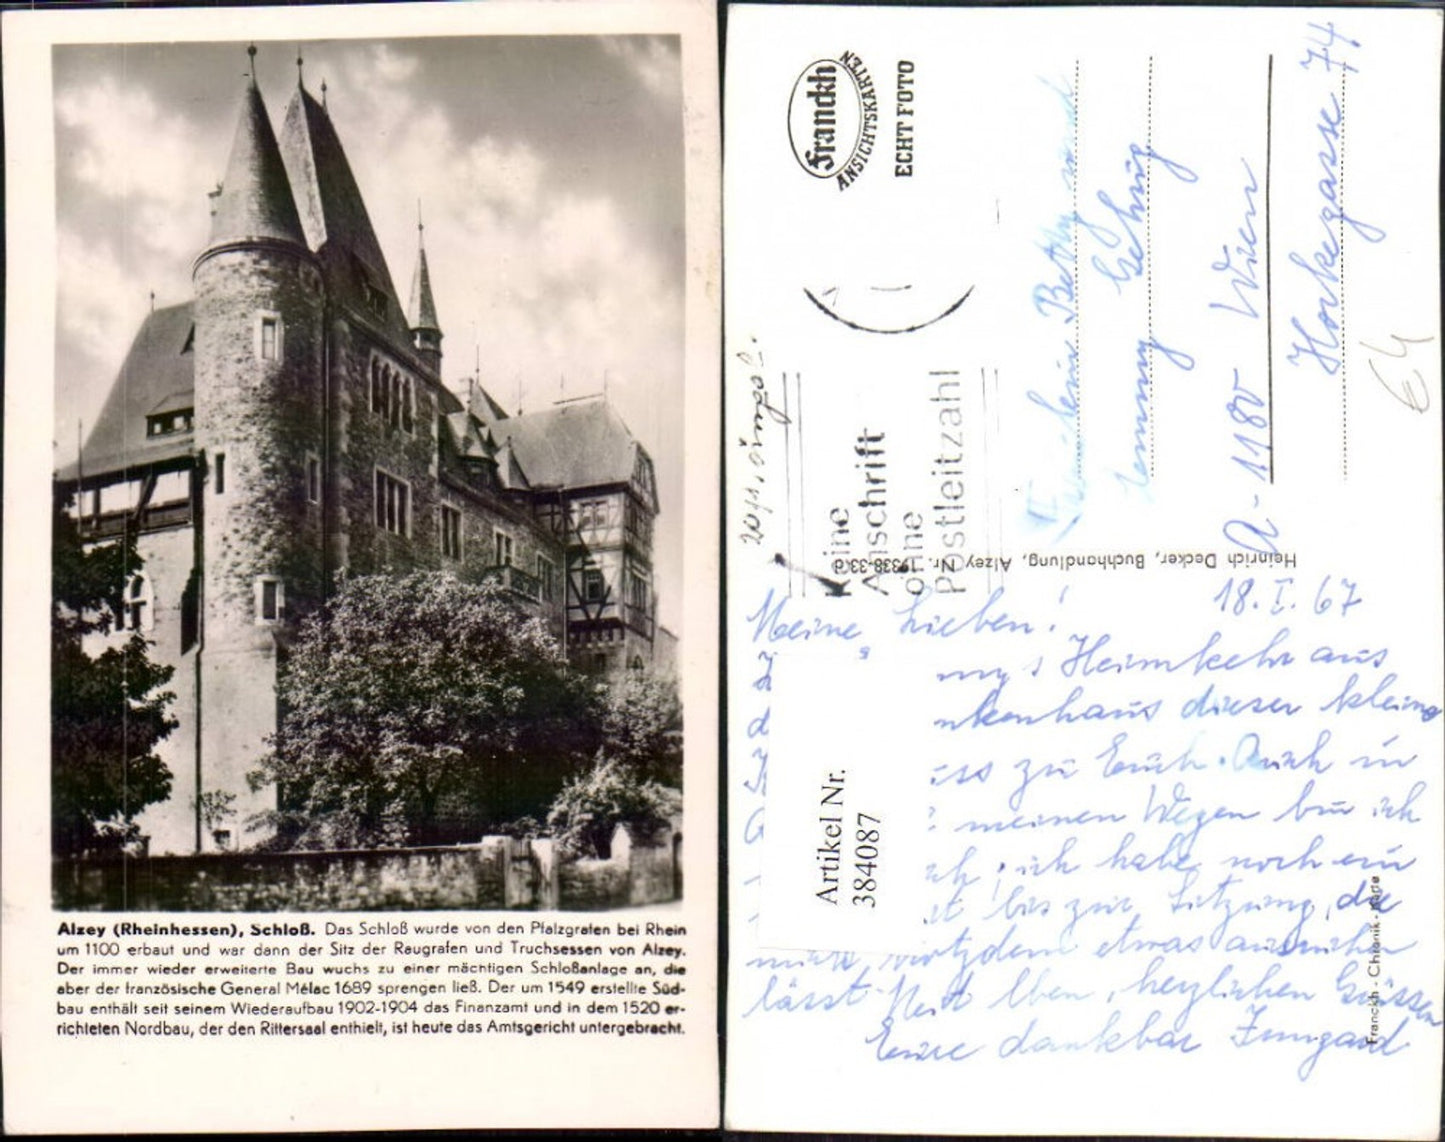 Alzey (Rheinhessen), Schloß. Das Schloß wurde von den Pfalzgrafen bei Rhein
um 1100 erbaut und war dann der Sitz der Raugrafen und Truchsessen von Alzey.
Der immer wieder erweiterte Bau wuchs zu einer mächtigen Schloßanlage an, die
aber der französische General Mélac 1689 sprengen ließ. Der um 1549 erstellte Süd-
bau enthält seit seinem Wiederaufbau 1902-1904 das Finanzamt und in dem 1520 er-
richteten Nordbau, der den Rittersaal enthielt, ist heute das Amtsgericht untergebracht.
Franckh
ANSICHTSKARTEN
ECHT FOTO
Keine
Anschrift
ohne
Postleitzahl
Betty und
Jenny Gehrig
A-1180 Wien
Hockegasse 74
Heinrich Decker, Buchhandlung, Alzey
18. I. 67
Meine Lieben!
Heimkehr aus
dieser kleine
zu Euch. Auch in
meinen Wegen bin ich
ich habe noch ein
bis zur Sitzung, die
trotzdem etwas ausruhen
lässt. Mit lben, herzlichen Grüssen
Eure dankbar Irmgard
Artikel Nr.
384087
Franckh - Chronik - Karte